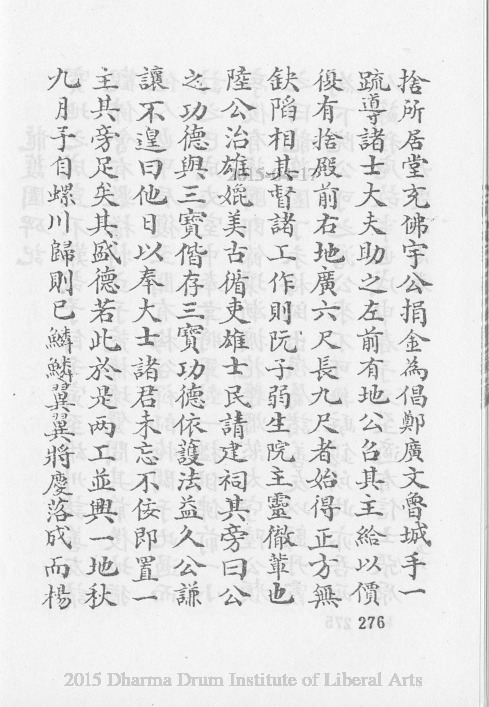 捨所居堂充佛宇公捐金為倡鄭廣文魯城手一
䟽導諸士大夫助之左前有地公召其主給以價
復有捨殿前右地廣六尺長九尺者始得正方無
缺陷相其督諸工作則阮子弱生院主靈徹輩也
陸公治雄媲美古循吏雄士民請建祠其旁曰公
之功德與三寶偕存三寶功德依護法益久公謙
讓不遑曰他日以奉大士諸君未忘不佞即置一
主其旁足矣其盛德若此於是两工並興一地秋
九月予自螺川歸則已鱗鱗翼翼將慶落成而楊
276
2015 Dharma Drum Institute of Liberal Arts